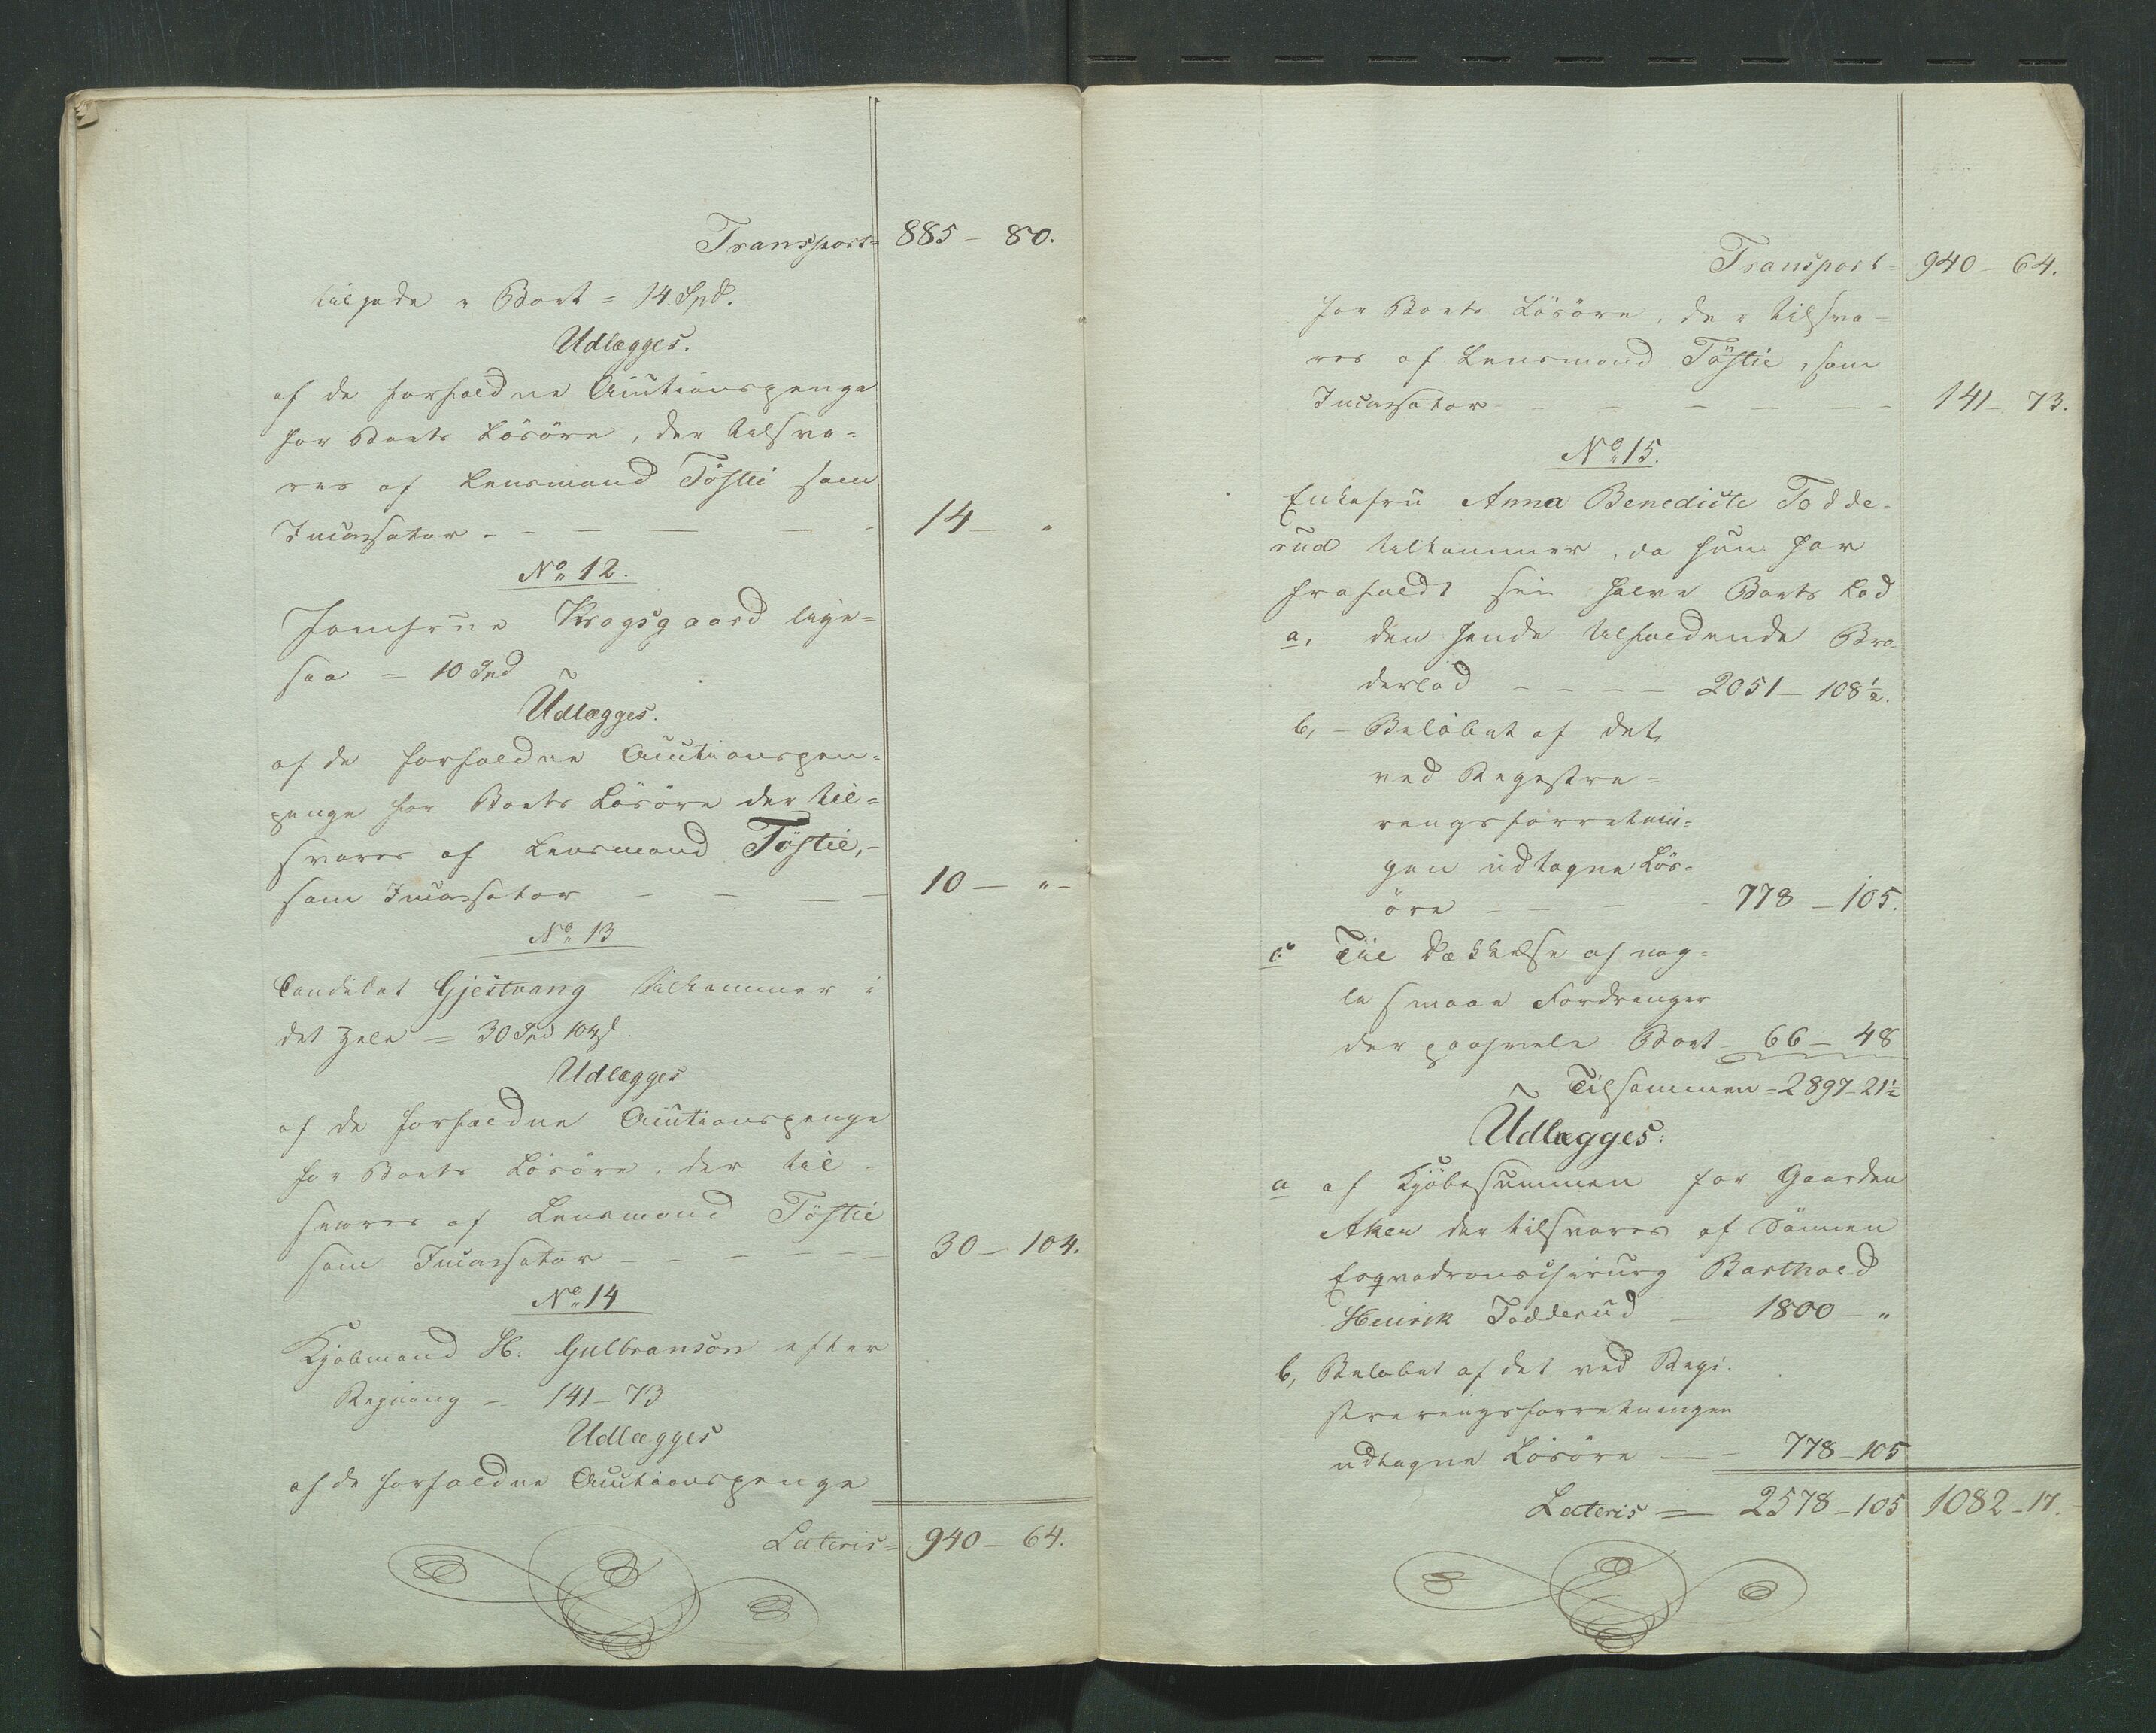 Transport= 885 - 80.
tilgode i Boet = 14 Spd.
Udlægges.
af de forfaldne Auctionspenge
for Boets Løsøre, der tilsva=
res af Lensmand Töftii som
Incassator - - - - - 14 - "
No. 12.
Jomfrue Krogsgaard lige=
saa = 10 Spd
Udlægges.
af de forfaldne Auctionspen=
penge for Boets Løsøre der til=
svares af Lensmand Töftie,-
som Incassator - - - - 10 - " -
No. 13
Candidat Gjestvang tilkommer i
det hele = 30 Spd 104 s.
Udlægges
af de forfaldne Auctionspenge
for Boets Løsøre, der til=
svares af Lensmand Töftie
som Incassator - - - - 30 - 104.
No. 14
Kjøbmand H: Gulbranson efter
Regning - 141 - 73
Udlægges
af de forfaldne Auctionspenge
Lateris= 940 - 64.
Transport= 940 - 64.
for Boets Løsøre, der tilsva-
res af Lensmand Töftie, som
Incassator - - - - - - 141 - 73.
No. 15.
Enkefru Anna Benedicte Todde-
rud tilkommer, da hun har
frafaldt sin halve Boets Lod
a, den hende tilfaldende Bro-
derlod - - - - 2051 - 108 1/2.
b, - Beløbet af det,
ved Regestre=
rengsforretnin=
gen udtagne Løs=
øre - - - - 778 - 105.
c. Til Dækkelse af nog=
le smaae Fordringer
der paahvile Boet - 66 - 48
Tilsammen = 2897 - 21 1/2
Udlægges:
a af Kjøbesummen for Gaarden
Aker der tilsvares af Sønnen
Esqvadronschirurg Barthold
Henrik Todderud - 1800 - "
b, Beløbet af det ved Regi-
streringsforretningen
udtagne Løsøre - - 778 - 105
Lateris = 2578 - 105 1082 - 17.